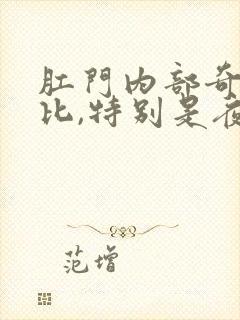 肛門內部奇
比,特别是夜
范增